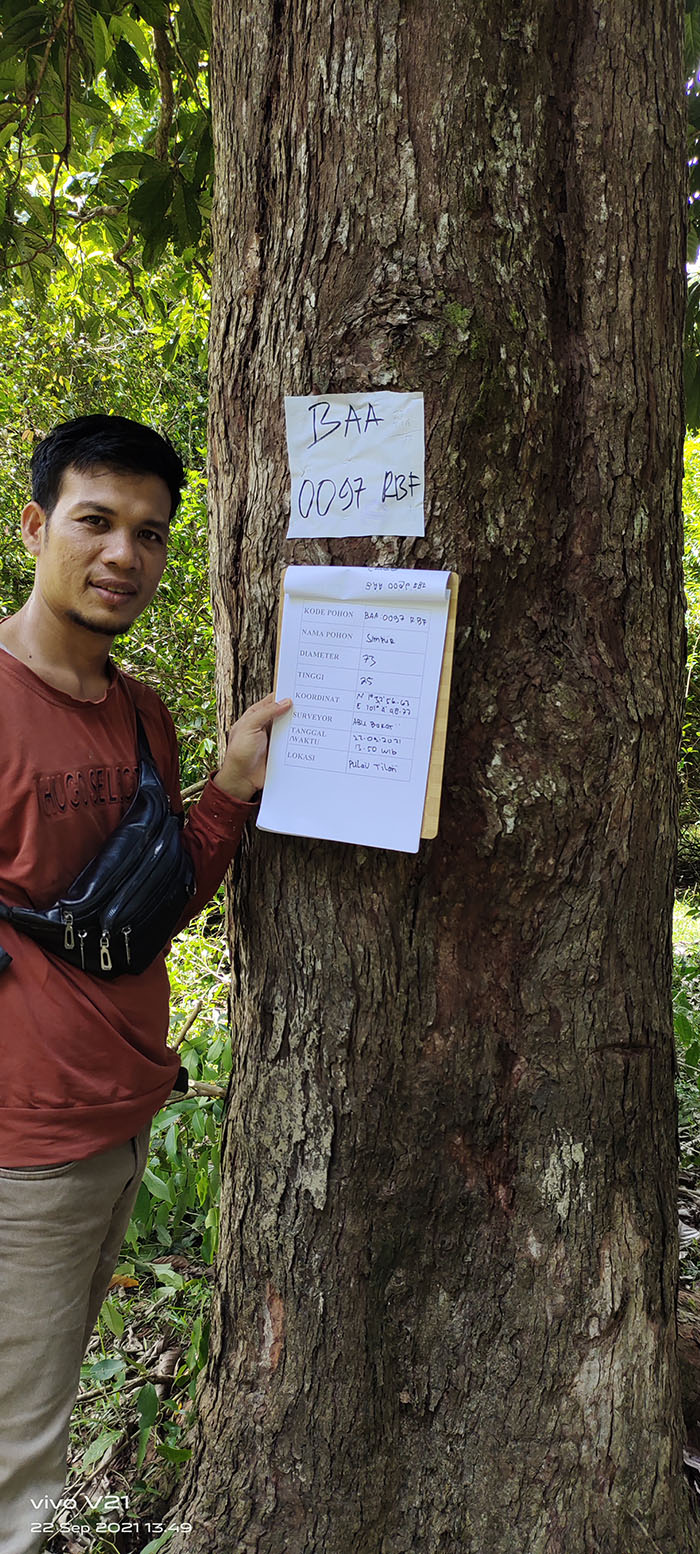 BAA
0097 RBF
BAA 0097 RBF
KODE POHON BAA 0097 RBF
NAMA POHON SIMPUR
DIAMETER 73
TINGGI 25
KOORDINAT N 1° 37' 56.63
E 101° 8' 48.77
SURVEYOR ABU BAKAR
TANGGAL 22-09-2021
/WAKTU 13.50 WIB
LOKASI PULAU TILAN
HUGOSELI
vivo V21
22 Sep 2021 13.49